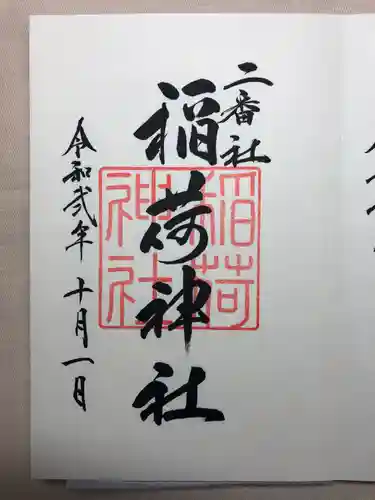 二番社
稲荷神社
稲荷神社
令和弐年 十月一日